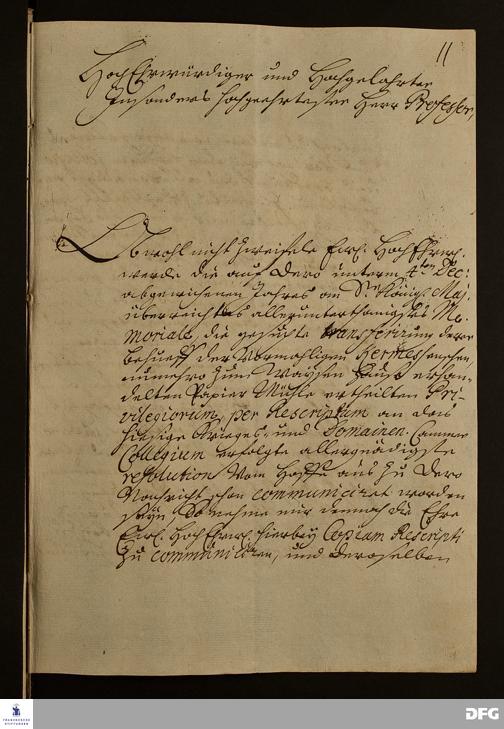 11
HochEhrwürdiger und Hochgelahrter
Insonders hochgeehrtester Herr Professor,
Obwohl nicht zweifele Ew. HochEhrw.
werde die auf Dero unterm 4ten Dec:
abgewichenen Jahres an Sr. Königl. Maj.
überreichtes allerunterthänigstes Me-
moriale, die gesuchte transferirung derer
Behueff der Vormahligen Kermes
nunmehro zum Waysen Hauß erhan-
delten Papier Mühle ertheilten Pri-
vilegiorum, per Rescriptum an das
hiesige Krieges- und Domainen-Cammer
Collegium erfolgte allergnädigste
resolution Vom Hoffe aus zu Dero
Nachricht schon communiciret worden
seyn So nehme mir dennoch die Ehre
Ew. HochEhrw. hierbey Copiam Rescripti
zu communiciren, und deroselben
FRANCKESCHE
STIFTUNGEN
DFG